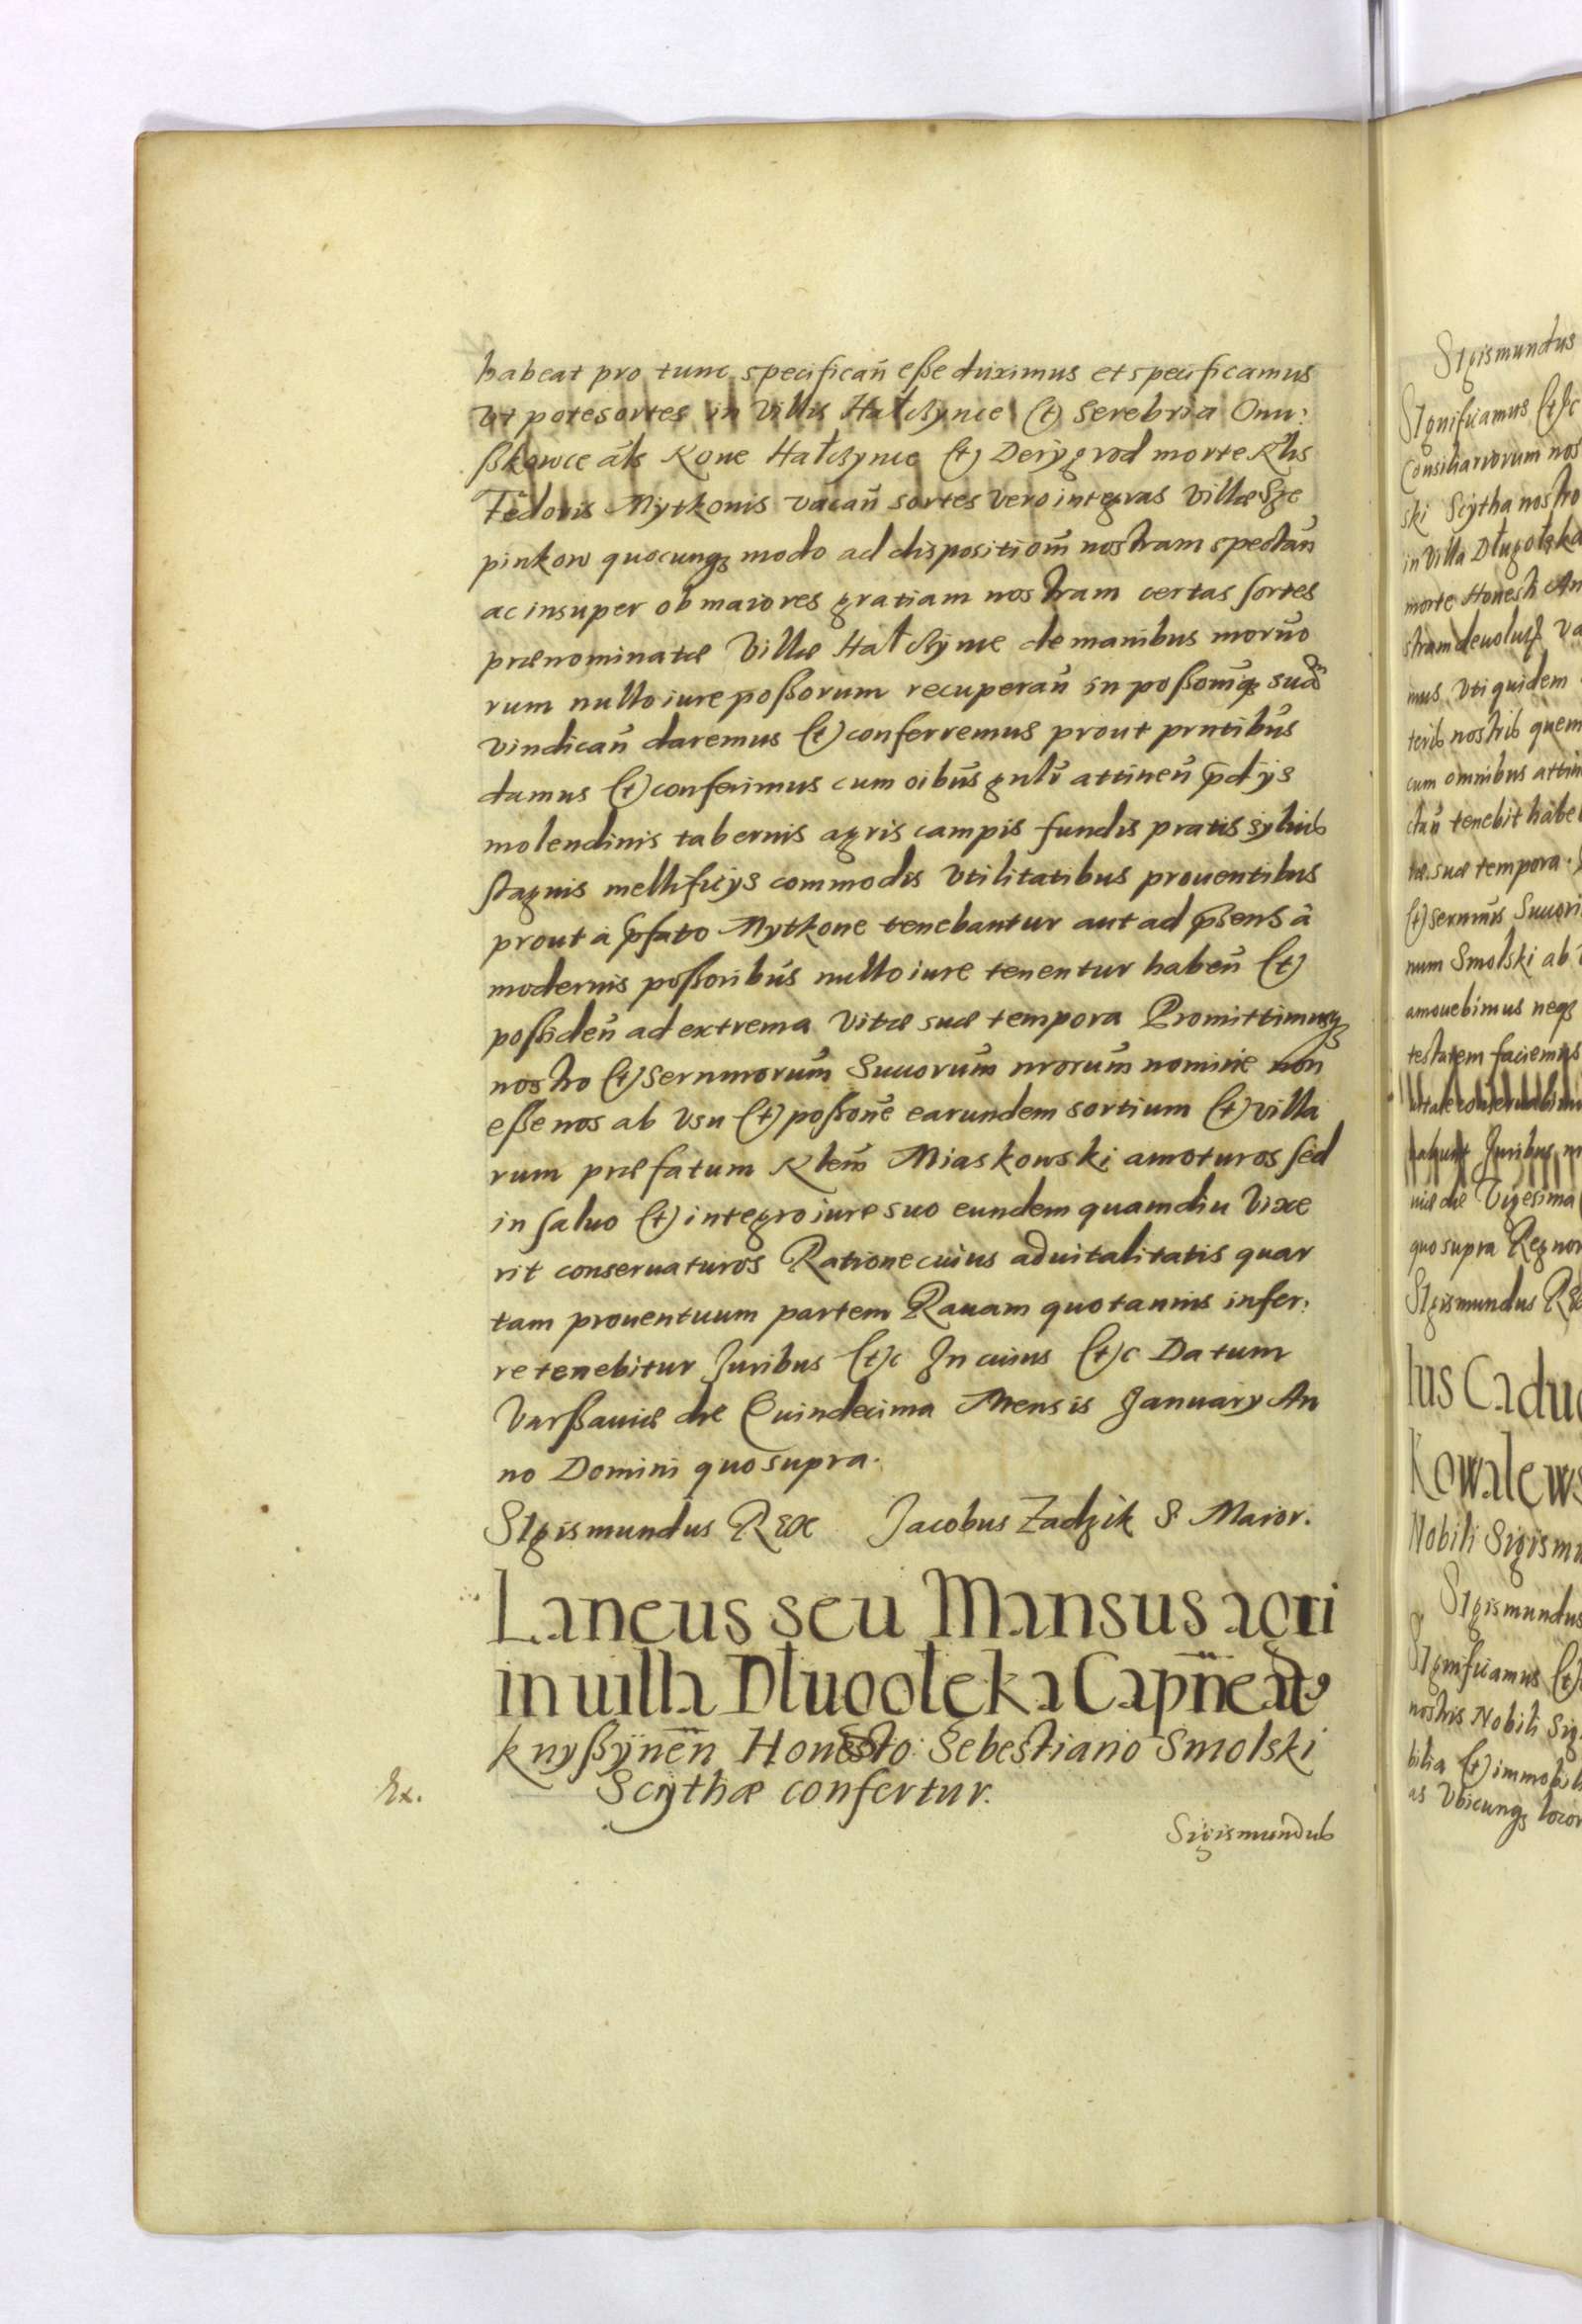 habeat pro tunc specifican̄ eße duximus et specificamus
vt pote sortes in Villis Hałczynce (et) Serebria Onu:
ßkowce āls Kone Hałczynce (et) Derÿgrod morte Ro̅lis
Fedoris Mytkonis vacan̄ sortes vero integras Villæ Sze
pinkow quocunqz modo ad dispositiom̄ nostram spectan̄
ac insuper ob maiores gratiam nostram certas sortes
prænominatæ Villæ Hałczynce de manibus moder̄no
rum nullo iure poßorum recuperan̄ in poßom̄qz suā
vindican̄ daremus (et) conferremus prout prntibus
damus (et) conferimus cum oibus gnlr̄ attinen̄ p̄dijs
molendinis tabernis agris campis fundis pratis syluis
stagnis mellificijs commodis vtilitatibus prouentibus
prout à p̄fato Mytkone tenebantur aut ad p̄sens à
modernis poßoribus nullo iure tenentur haben̄ (et)
poßiden̄ ad extrema Vitæ suæ tempora Promittimusqz
nostro (et) Sernmorum̄ Succorum̄ nrorum̄ nomine non
eße nos ab vsu (et) poßone earundem sortium (et) villa
rum præfatum Ro̅lem Miaskowski amoturos sed
in saluo (et) integro iure suo eundem quamdiu Vixe
rit conseruaturos Ratione cuius aduitalitatis quar
tam prouentuum partem Rauam quotannis infer:
re tenebitur Juribus (et)c In cuius (et)c Datum
Varßauiæ die Quindecima Mensis January An
no Domini quo supra.
SIgismundus REX Jacobus Zadzik S Maior.
Laneus seu Mansus agri
in uilla Długołeka Capn̄eatꝰ
knyßÿnen̄ Honesto Sebestiano Smolski
Scÿthæ confertur.
Ex.
Sigismundus
SIgismundus
SIgnificamus (et)c
Consiliariorum nos
ski Scÿtha nostro
in Villa Długołeka
morte Honesti An
stram deuolut̄ va
mus vti quidem
teris nostris quem
cum omnibus attin
ctan̄ tenebit habe
tæ suæ tempora.
(et) Sernmis Succori
num Smolski ab
amouebimus neqz
testatem faciemus
uitale conseruabimus
habunt Juribus
uiæ die Vigesima
quo supra Regnor
SIgismundus RE
Ius Caduc
Kowalews
Nobili Sigismu
SIgismundus
SIgnificamus (et)
nostris Nobili Sig
bilia (et) immobil
as vbicunqz locor